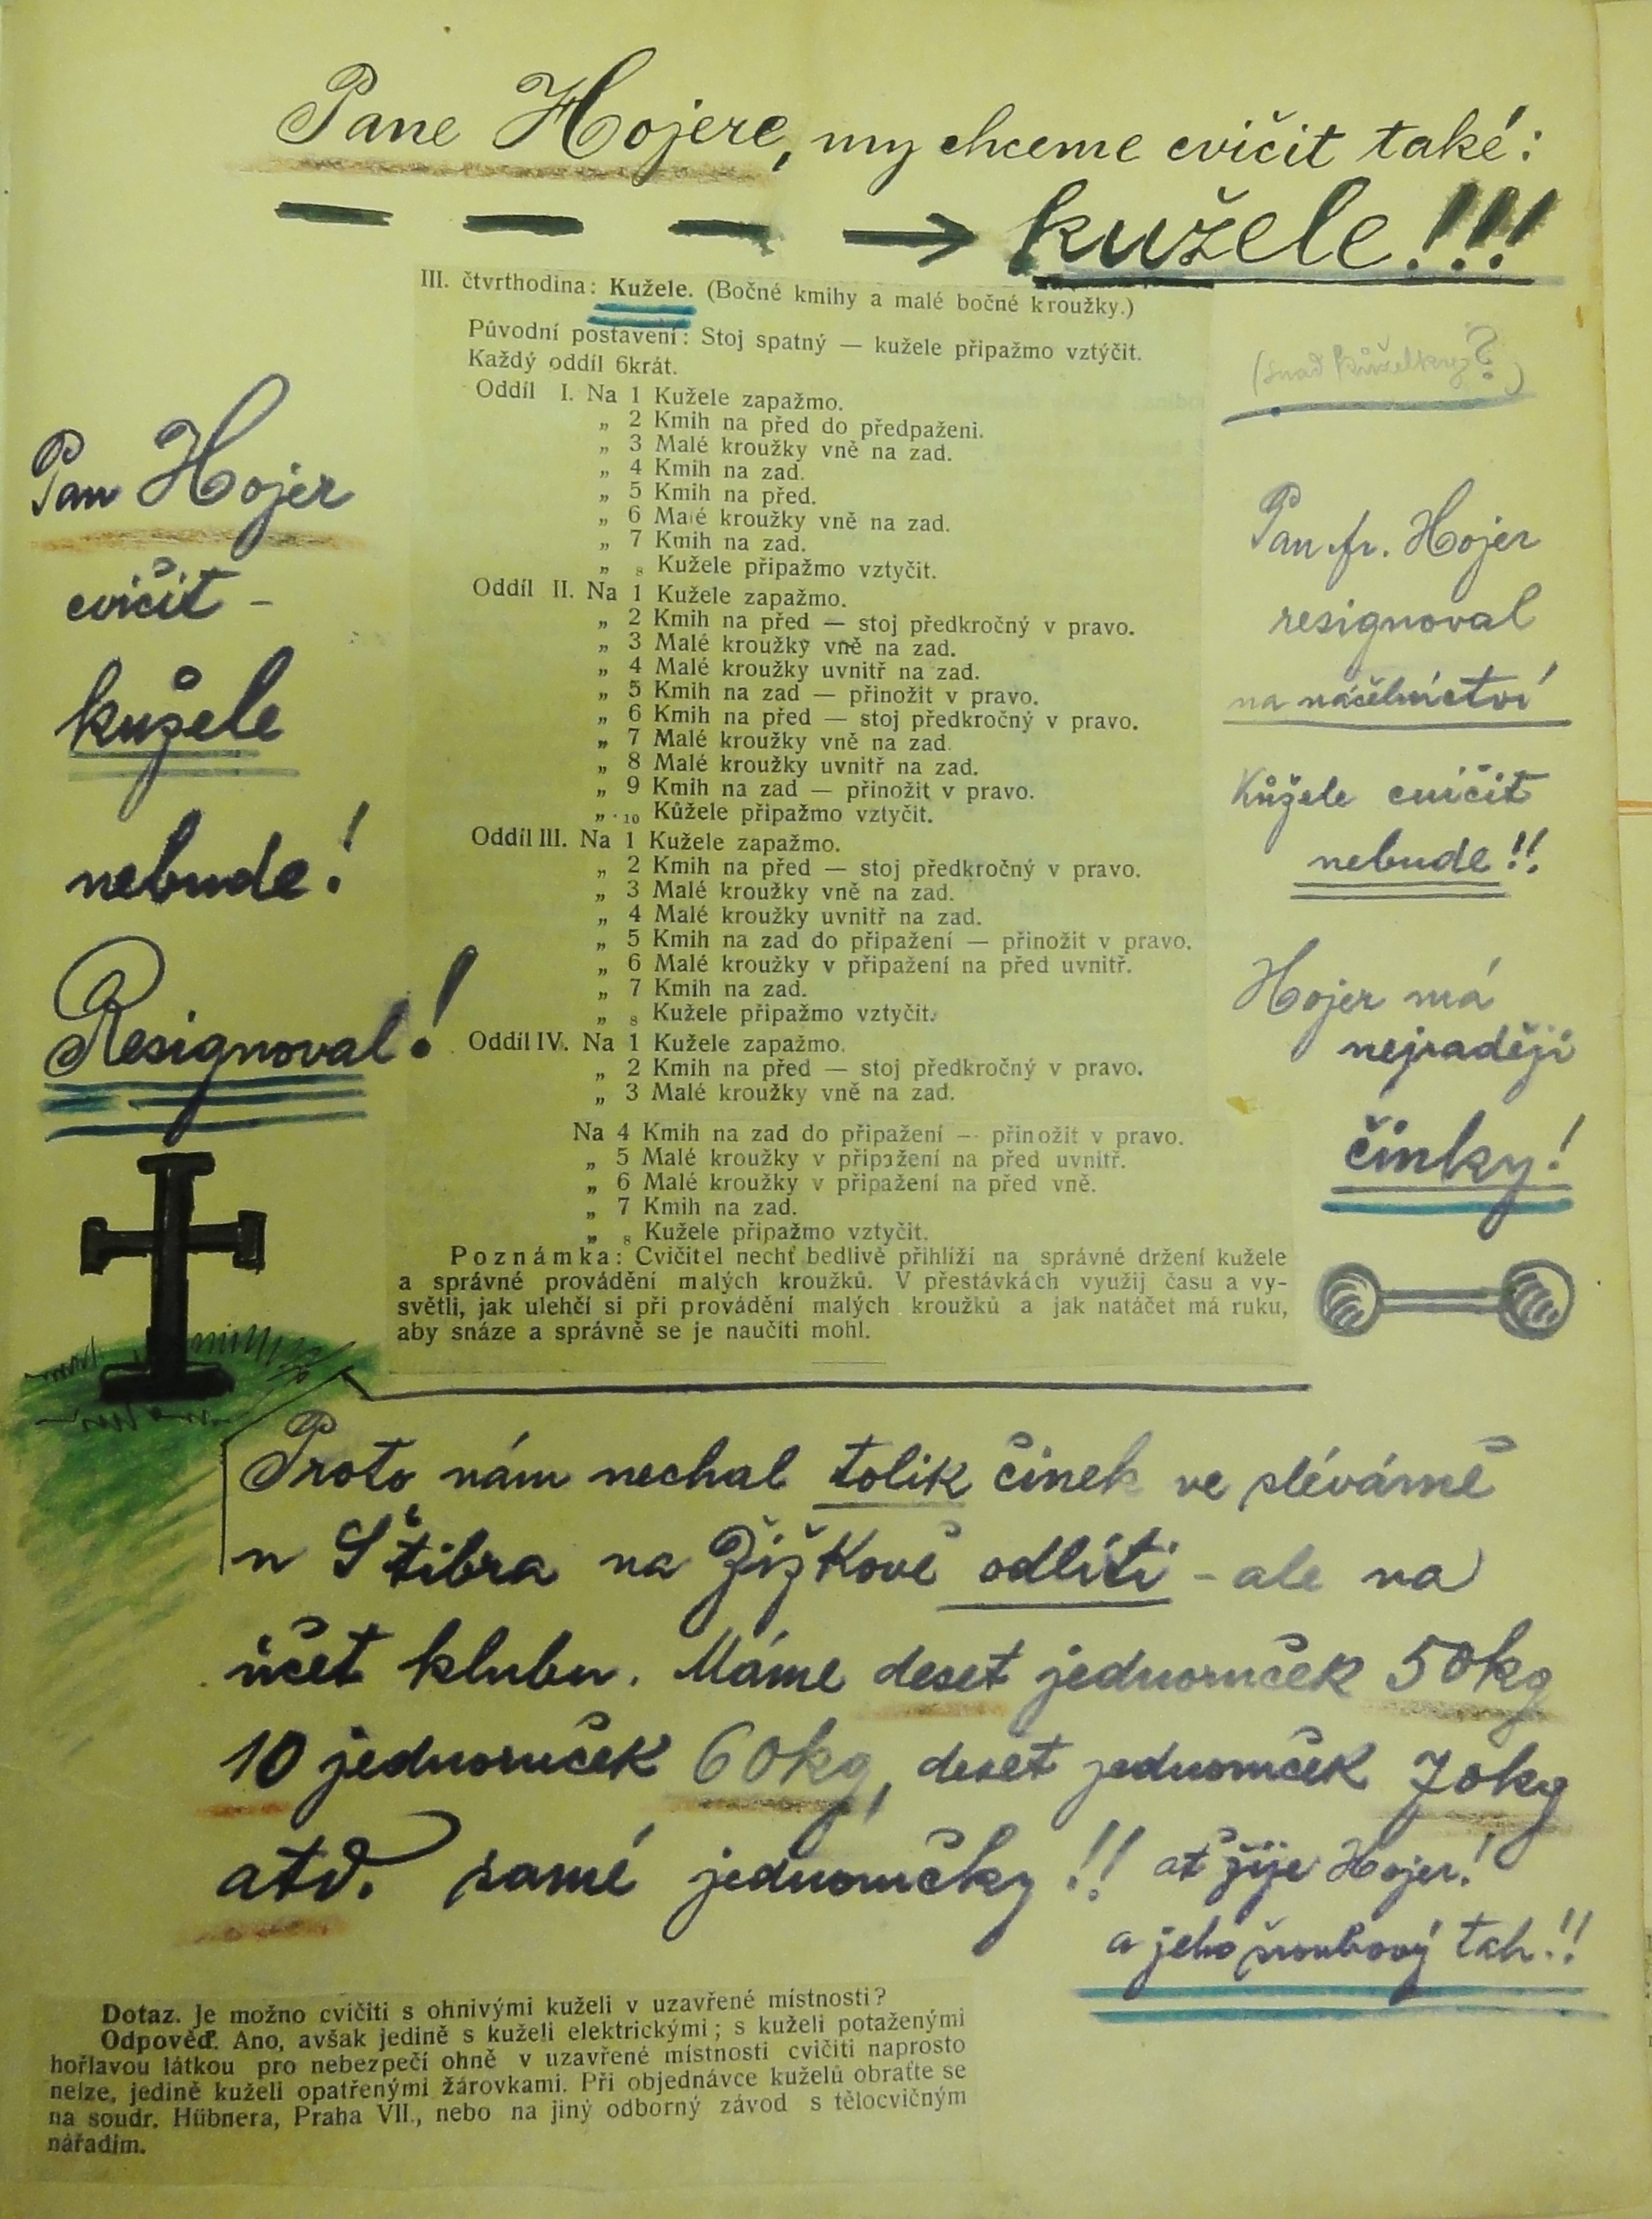 Pane Hojere, my chceme cvičit také:
kužele!!!
III. čtvrthodina: Kužele. (Bočné kmihy a malé bočné kroužky.)
Původní postavení: Stoj spatný — kužele připažmo vztýčit.
Každý oddíl 6krát.
Oddíl I. Na 1 Kužele zapažmo.
„ 2 Kmih na před do předpažení.
„ 3 Malé kroužky vně na zad.
„ 4 Kmih na zad.
„ 5 Kmih na před.
„ 6 Malé kroužky vně na zad.
„ 7 Kmih na zad.
„ 8 Kužele připažmo vztyčit.
Oddíl II. Na 1 Kužele zapažmo.
„ 2 Kmih na před — stoj předkročný v pravo.
„ 3 Malé kroužky vně na zad.
„ 4 Malé kroužky uvnitř na zad.
„ 5 Kmih na zad — přinožit v pravo.
„ 6 Kmih na před — stoj předkročný v pravo.
„ 7 Malé kroužky vně na zad.
„ 8 Malé kroužky uvnitř na zad.
„ 9 Kmih na zad — přinožit v pravo.
„ 10 Kůžele připažmo vztyčit.
Oddíl III. Na 1 Kužele zapažmo.
„ 2 Kmih na před — stoj předkročný v pravo.
„ 3 Malé kroužky vně na zad.
„ 4 Malé kroužky uvnitř na zad.
„ 5 Kmih na zad do připažení — přinožit v pravo.
„ 6 Malé kroužky v připažení na před uvnitř.
„ 7 Kmih na zad.
„ 8 Kužele připažmo vztyčit.
Oddíl IV. Na 1 Kužele zapažmo.
„ 2 Kmih na před — stoj předkročný v pravo.
„ 3 Malé kroužky vně na zad.
Na 4 Kmih na zad do připažení — přinožit v pravo.
„ 5 Malé kroužky v připažení na před uvnitř.
„ 6 Malé kroužky v připažení na před vně.
„ 7 Kmih na zad.
„ 8 Kužele připažmo vztyčit.
Poznámka: Cvičitel nechť bedlivě přihlíží na správné držení kužele
a správné provádění malých kroužků. V přestávkách využij času a vy-
světli, jak ulehčí si při provádění malých kroužků a jak natáčet má ruku,
aby snáze a správně se je naučiti mohl.
Pan Hojer
cvičit -
kužele
nebude!
Resignoval!
(snad kuželky?)
Pan fr. Hojer
resignoval
na náčelnictví
Kůžele cvičit
nebude!!
Hojer má
nejraději
činky!
Proto nám nechal tolik činek ve slévárně
u Štibra na Žižkově odlíti - ale na
účet klubu. Máme deset jednoruček 50kg
10 jednoruček 60kg, deset jednoruček 70kg
atd. samé jednoručky!! ať žije Hojer!
a jeho šroubový tah!!
Dotaz. Je možno cvičiti s ohnivými kuželi v uzavřené místnosti?
Odpověď. Ano, avšak jedině s kuželi elektrickými; s kuželi potaženými
hořlavou látkou pro nebezpečí ohně v uzavřené místnosti cvičiti naprosto
nelze, jedině kuželi opatřenými žárovkami. Při objednávce kuželů obraťte se
na soudr. Hübnera, Praha VII., nebo na jiný odborný závod s tělocvičným
nářadím.